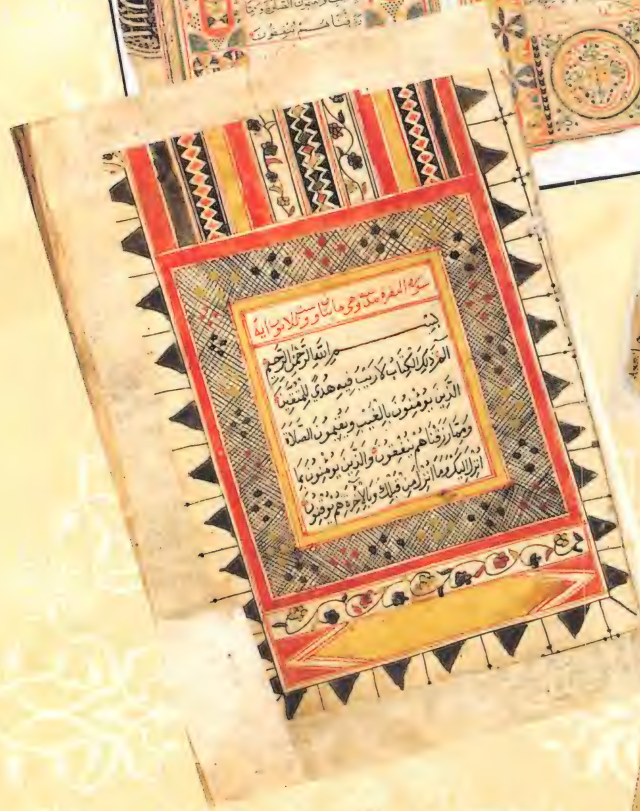 وفناهم ينفقون
سورة البقرة مدنية وهي مايتان وست وثلاثون اية
بسم الله الرحمن الرحيم
الم ذلك الكتاب لا ريب فيه هدى للمتقين
الذين يومنون بالغيب ويقيمون الصلاة
ومما رزقناهم ينفقون والذين يومنون بما
انزل اليك وما انزل من قبلك وبالاخرة هم يوقنون